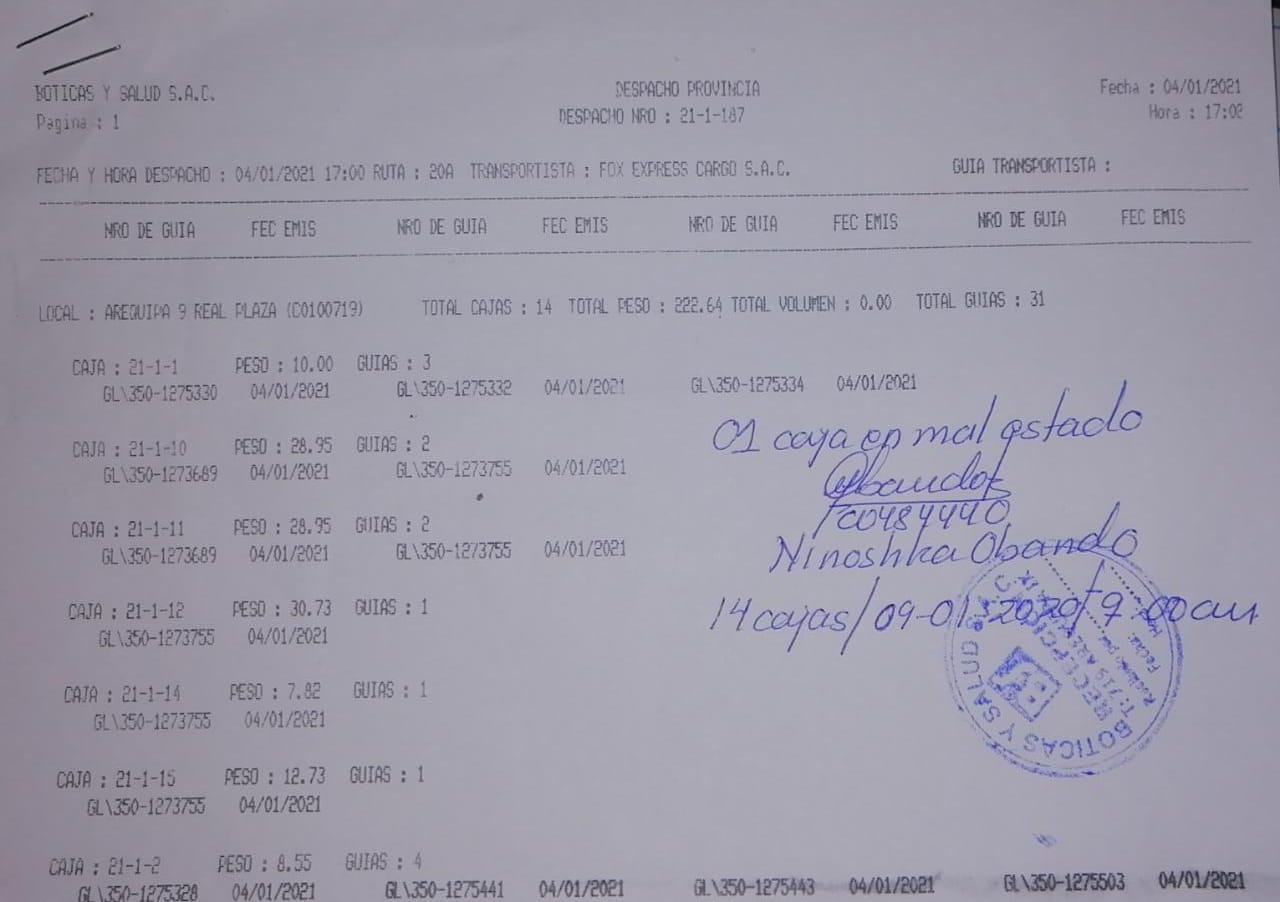 BOTICAS Y SALUD S.A.C. DESPACHO PROVINCIA Fecha : 04/01/2021
Pagina : 1 DESPACHO NRO : 21-1-187 Hora : 17:02
FECHA Y HORA DESPACHO : 04/01/2021 17:00 RUTA : 20A TRANSPORTISTA : FOX EXPRESS CARGO S.A.C. GUIA TRANSPORTISTA :
NRO DE GUIA FEC EMIS NRO DE GUIA FEC EMIS NRO DE GUIA FEC EMIS NRO DE GUIA FEC EMIS
LOCAL : AREQUIPA 9 REAL PLAZA (C0100719) TOTAL CAJAS : 14 TOTAL PESO : 222.64 TOTAL VOLUMEN : 0.00 TOTAL GUIAS : 31
CAJA : 21-1-1 PESO : 10.00 GUIAS : 3
GL\350-1275330 04/01/2021 GL\350-1275332 04/01/2021 GL\350-1275334 04/01/2021
01 caja en mal estado
CAJA : 21-1-10 PESO : 28.95 GUIAS : 2
GL\350-1273689 04/01/2021 GL\350-1273755 04/01/2021
CAJA : 21-1-11 PESO : 28.95 GUIAS : 2
GL\350-1273689 04/01/2021 GL\350-1273755 04/01/2021
Ninoshka Obando
CAJA : 21-1-12 PESO : 30.73 GUIAS : 1
14 cajas / 09-01-2020 / 9:00am
GL\350-1273755 04/01/2021
BOTICAS Y SALUD S.A.C.
RECEPCION
CAJA : 21-1-14 PESO : 7.82 GUIAS : 1
GL\350-1273755 04/01/2021
CAJA : 21-1-15 PESO : 12.73 GUIAS : 1
GL\350-1273755 04/01/2021
CAJA : 21-1-2 PESO : 8.55 GUIAS : 4
GL\350-1275328 04/01/2021 GL\350-1275441 04/01/2021 GL\350-1275443 04/01/2021 GL\350-1275503 04/01/2021